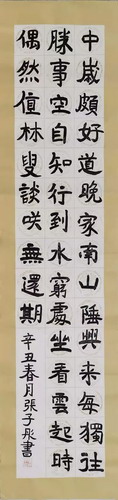 中歲頗好道晚家南山陲興來每獨往
勝事空自知行到水窮處坐看雲起時
偶然值林叟談咲無還期
辛丑春月張子彤書